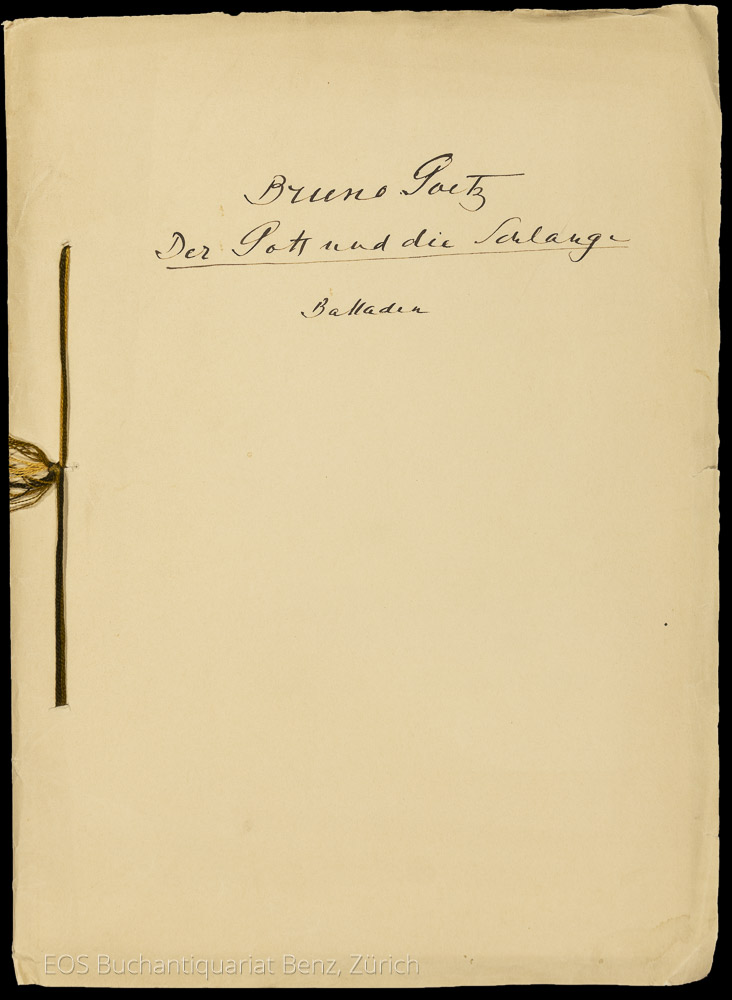 Bruno Goetz
Der Gott und die Schlange
Balladen
EOS Buchantiquariat Benz, Zürich